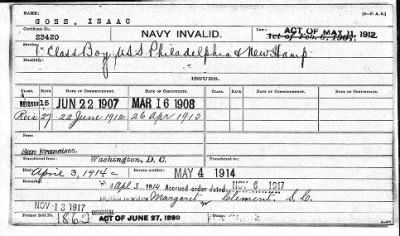 NAME:
GOSS, ISAAC
(3—P. A. S.)
Certificate No.
23420
NAVY INVALID.
ACT OF MAY 11, 1912.
Act of Feb. 6, 1907.
Service:
1st Class Boy, U.S.S. Philadelphia & New Hamp.
Disability:
ISSUES.
CLASS.
RATE.
DATE OF COMMENCEMENT.
DATE OF CERTIFICATE.
RATE.
DATE OF COMMENCEMENT.
DATE OF CERTIFICATE.
15
JUN 22 1907
MAR 16 1908
Reis 27
22 June 1912
26 Apr 1913
San Francisco.
Transferred from
Washington, D. C.
Transferred to
Died
April 3, 1914
MAY 4 1914
Apl 3, 1914
Accrued order dated
NOV 6 1917
NOV 13 1917
Margaret Climent, S.C.
Former Roll No.
1862
ACT OF JUNE 27, 1890